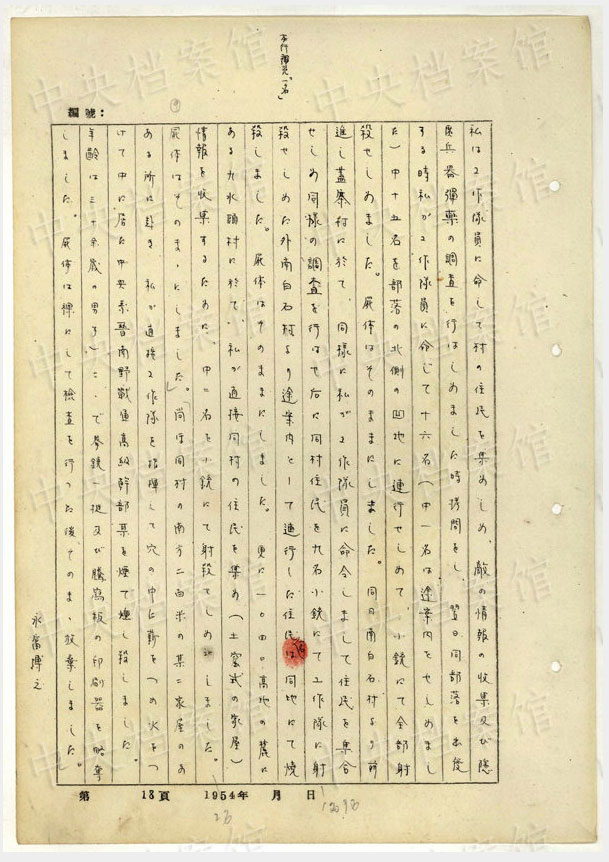 本行補充「名」
編號：
私は工作隊員に命して村の住民を集めしめ、敵の情報の收集及び隠
匿兵器彈藥の調査を行はしめました時拷問をし、翌日同部落を出發
する時私が工作隊員に命じて十六名(中一名は途案内をせしめまし
た)中十五名を部落の北側の凹地に連行せしめて、小銃にて全部射
殺せしめました。屍体はそのままにしました。同日南白石村より前
進し蓋寨村に於て、同様に私が工作隊員に命令しまして住民を集合
せしめ同様の調査を行はせ后に同村住民を九名小銃にて工作隊に射
殺せしめた外南白石村より途案内として連行した住民は同地にて焼
殺しました。屍体はそのままにしました。更に一〇四〇高地の麓に
ある九水頭村に於て、私が直接同村の住民を集め(土窑式の家屋)
情報を收集するために、中二名を小銃にて射殺てしめしました。
屍体はそのまゝにしました」尚ほ同村の南方二百米の某二家屋のあ
ある所に赴き、私が直接工作隊を指揮して穴の中に薪をつめ火をつ
けて中に居た中央系晋南野戰區高級幹部某を煙で燻し殺しました。
年齢は三十余歳の男子)こゝで拳銃一挺及び騰寫板の印刷器を略奪
しました。屍体は裸にして檢査を行った後そのまゝ放棄しました。」
永富博之
第 13頁 1954年 月 日
中央档案馆